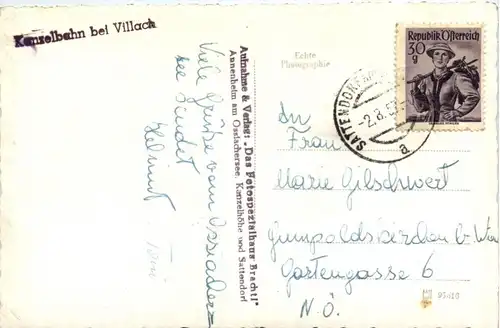 Kanzelbahn bei Villach
Viele Grüße vom Ossiacher
see sendet
Helmut
Aufnahme & Verlag: „Das Fotospezialhaus Brachtl"
Annenheim am Ossiachersee, Kanzelhöhe und Sattendorf
Echte
Photographie
Republik Österreich
30
g
SATTENDORF
-2.8.5
a
An
Frau
Marie Gilschwert
Gumpoldskirchen b. Wien
Gartengasse 6
N.Ö.